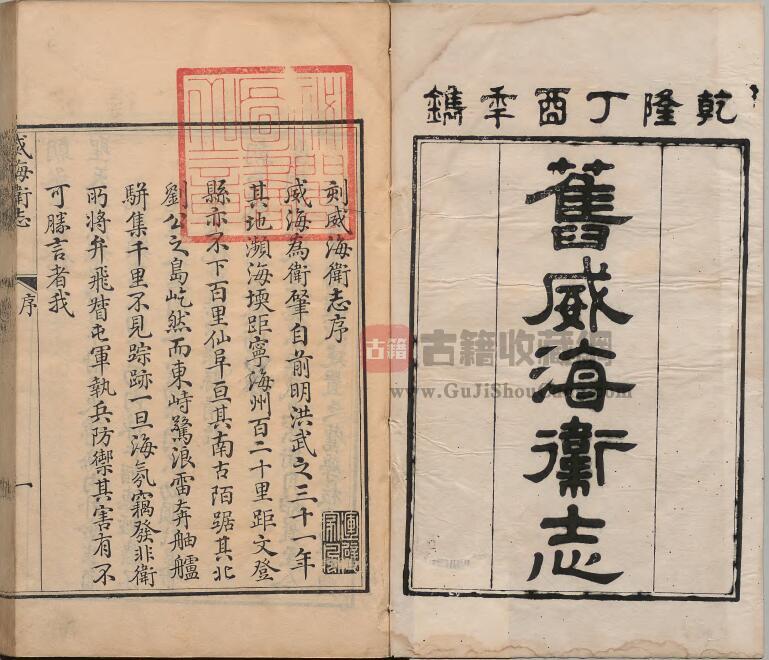 乾隆丁酉季鐫
舊威海衛志
刻威海衛志序
威海為衛肇自前明洪武之三十一年
其地瀕海堧距寧海州百二十里距文登
縣亦不下百里仙阜亘其南古陌踞其北
劉公之島屹然而東峙驚浪雷奔舳艫
駢集千里不見踪跡一旦海氛竊發非衛
所將弁飛芻屯軍執兵防禦其害有不
可勝言者我
威海衛志
序
一
古籍
古籍收藏網
www.GuJiShouCang.com